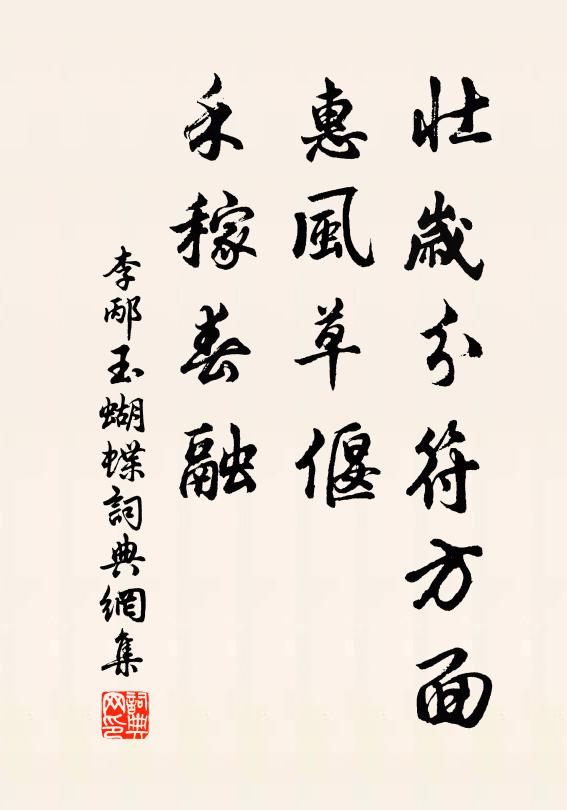 壮歲分符方面
惠風草偃
禾稼春融
李邴玉蝴蝶詞典網集
詞典网印